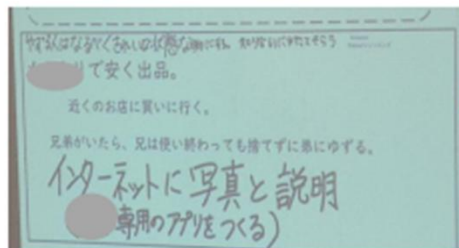 で安く出品。
近くのお店に買いに行く。
兄弟がいたら、兄は使い終わっても捨てずに弟にゆずる。
インターネットに写真と説明
専用のアプリをつくる)